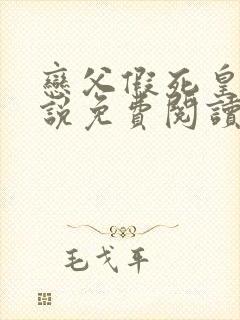 戀父假死皇
說免費閱讀
毛戈平